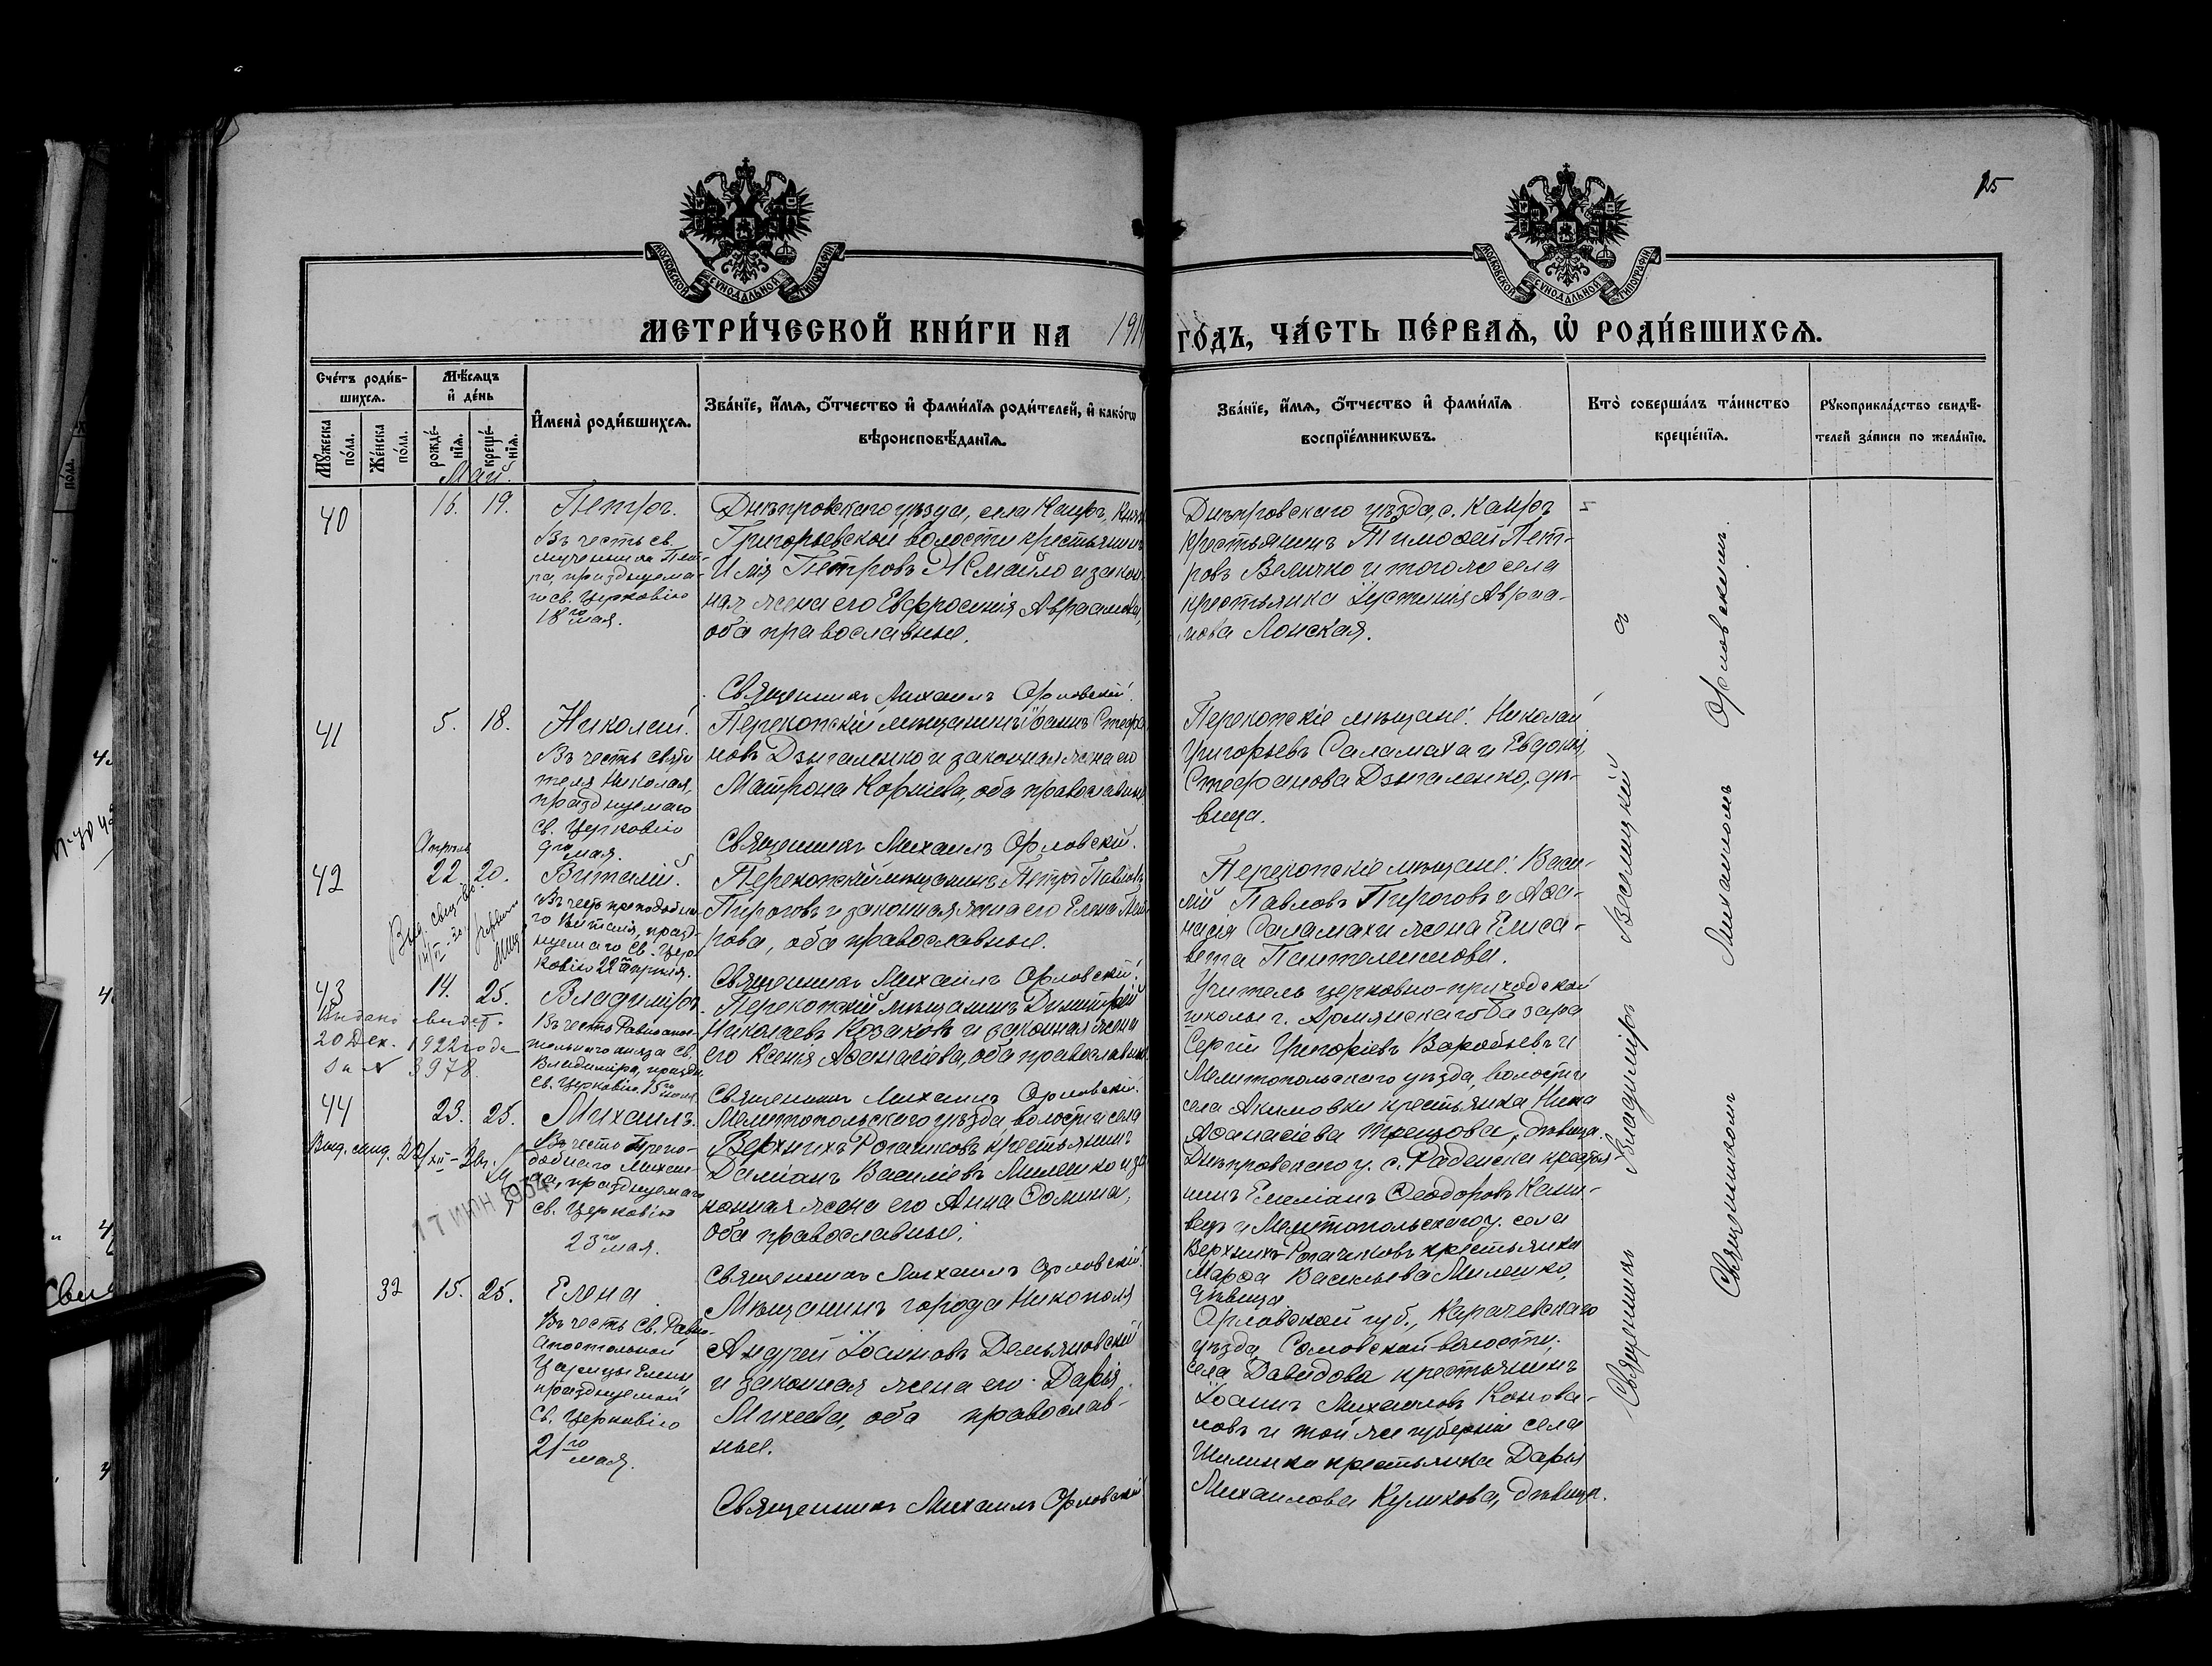 25
МОСКОВСКОЙ СѴНОДАЛЬНОЙ ТИПОГРАФІИ
МОСКОВСКОЙ СѴНОДАЛЬНОЙ ТИПОГРАФІИ
МЕТРИ́ЧЕСКОЙ КНИ́ГИ НА 191
ГО́ДЪ, ЧА́СТЬ ПЕ́РВАѦ, Ѡ҆ РОДИ́ВШИХСѦ.
Сче́тъ роди́в-
шихсѧ.
Мѣ́сѧцъ
и҆ де́нь
И҆мена̀ роди́вшихсѧ.
Зва́нїе, и҆́мѧ, ѻ҆́тчество и҆ фами́лїѧ роди́телей, и҆ како́гѡ
вѣроисповѣ́данїѧ.
Мꙋ́жеска
по́ла.
Же́нска
по́ла.
рожде́-
нїѧ.
креще́-
нїѧ.
Зва́нїе, и҆́мѧ, ѻ҆́тчество и҆ фами́лїѧ
воспрїе́мникѡвъ.
Кто̀ соверша́лъ та́инство
креще́нїѧ.
Рꙋкоприкла́дство свидѣ́-
телей за́писи по жела́нїю.
Май.
40
16. 19.
Петръ.
Въ честь св.
мученика Пет-
ра, празднуема-
го св. Церковію
18го мая.
Днѣпровскаго уѣзда, села Каиръ,
Григорьевской волости крестьянинъ
Илія Петровъ Жмайло и закон-
ная жена его Евфросинія Авраамова,
оба православные.
Священникъ Михаилъ Орловскій.
Днѣпровскаго уѣзда, с. Каиръ
крестьянинъ Тимоѳей Пет-
ровъ Величко и того же села
крестьянка Іустинія Авраа-
мова Лонская.
41
5. 18.
Николай.
Въ честь святи
теля Николая,
празднуемаго
св. Церковію
9го мая.
Перекопскій мѣщанинъ Іоаннъ Стефа
новъ Дзыгаленко и законная жена его
Матрона Корніева, оба православные
Священникъ Михаилъ Орловскій.
Перекопскіе мѣщане: Николай
Григорьевъ Саламаха и Евдокія
Стефанова Дзыгаленко, дѣ-
вица.
Апрель
42
22. 20.
Виталій.
Въ честь преподобна-
го Виталія, празд-
нуемаго св. Цер-
ковію 22го апрѣля.
Перекопскій мѣщанинъ Петръ Павловъ
Пироговъ и законная жена его Елена Пет
рова, оба православные.
Священникъ Михаилъ Орловскій.
Перекопскіе мѣщане: Васи-
лій Павловъ Пироговъ и Аѳа-
насія Саламахи жена Елиса-
вета Пантелеимова.
43
14. 25.
Выдано свидет.
20 Дек. 1922 года
за № 3978.
Владиміръ.
Въ честь Равноапос-
тольнаго князя св.
Владиміра, праздн.
св. Церковію 15го іюля
Перекопскій мѣщанинъ Димитрій
Николаевъ Козаковъ и законная жена
его Ксенія Аѳанасіева, оба православные
Священникъ Михаилъ Орловскій.
Учитель церковно-приходской
школы г. Армянскаго Базара
Сергій Григоріевъ Воробьевъ и
Мелитопольскаго уѣзда, волости и
села Акимовки крестьянка Нина
Аѳанасіева Трецова, дѣвица.
44
23. 25.
17 ИЮН 1954
Михаилъ.
Въ честь Препо-
добнаго Михаи-
ла, празднуемаго
св. Церковію
23го мая.
Мелитопольскаго уѣзда, волости и села
Верхнихъ Рогачиковъ крестьянинъ
Даміанъ Василіевъ Милешко и за-
конная жена его Анна Ѳомина,
оба православные.
Священникъ Михаилъ Орловскій.
Днѣпровскаго у. с. Раденска крестья-
нинъ Емеліанъ Ѳеодоровъ
и Мелитопольскаго у. села
Верхнихъ-Рогачиковъ крестьянка
Марѳа Васильева Милешко,
дѣвица.
32
15. 25.
Елена
Въ честь св. Равно-
апостольной
Царицы Елены
празднуемой
св. Церковію
21го мая.
Мѣщанинъ города Никополя
Андрей Іоанновъ Демьяновскій
и законная жена его Дарія
Михеева, оба православ-
ные.
Священникъ Михаилъ Орловскій
Орловской губ., Карачевскаго
уѣзда, Сомовской волости,
села Давидова крестьянинъ
Іоаннъ Михаиловъ Конова-
ловъ и той же губерніи села
Шилинка крестьянка Дарія
Михаилова Куликова, дѣвица.
Священникъ Владиміръ Веселицкій
Священникомъ Михаиломъ Орловскимъ.